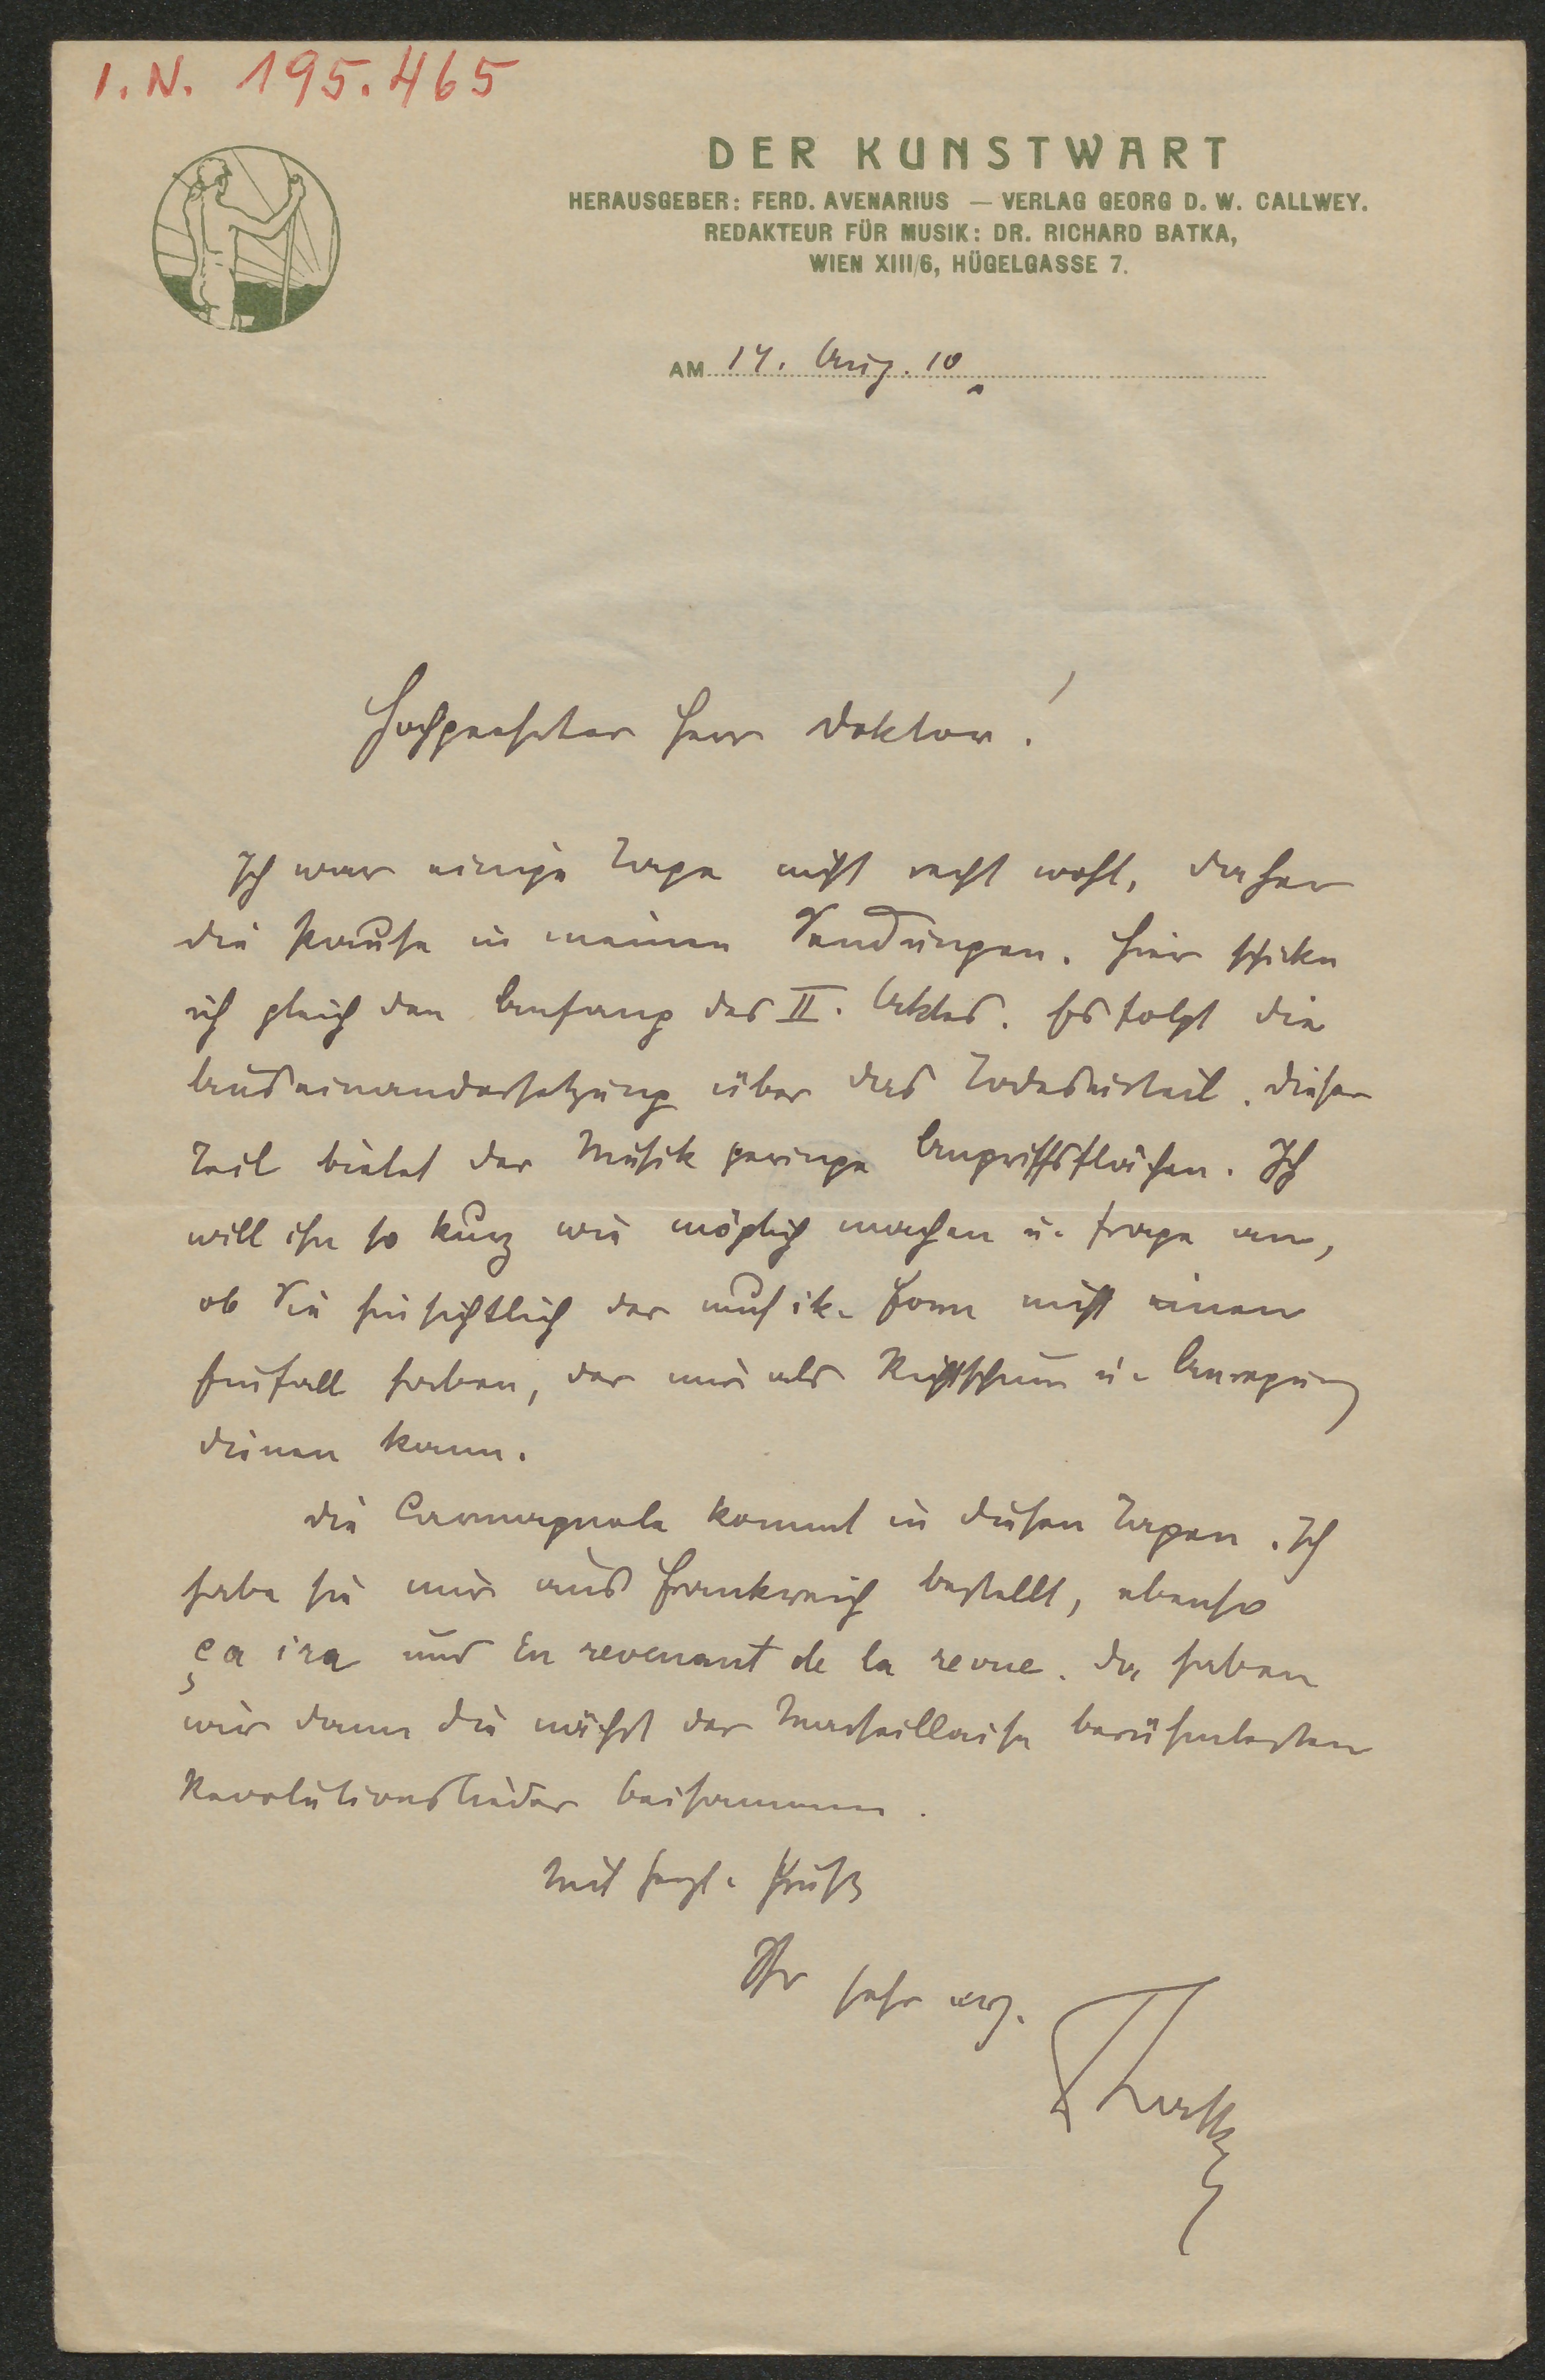 I.N. 195.465
DER KUNSTWART
HERAUSGEBER: FERD. AVENARIUS — VERLAG GEORG D. W. CALLWEY.
REDAKTEUR FÜR MUSIK: DR. RICHARD BATKA,
WIEN XIII/6, HÜGELGASSE 7.
AM 14. Aug. 10
Hochgeehrter Herr Doktor!
Ich war einige Tage nicht recht wohl, daher
die Pause in meinen Sendungen. Hier schicke
ich gleich den Anfang des II. Aktes. Es folgt die
Auseinandersetzung über das Todesurteil. Dieser
Teil bietet der Musik geringe Angriffsflächen. Ich
will ihn so kurz wie möglich machen u. frage an,
ob Sie hinsichtlich der musik. Form nicht einen
Einfall haben, der mir als Richtschnur u. Anregung
dienen kann.
Die Carmagnole kommt in diesen Tagen. Ich
habe sie mir aus Frankreich bestellt, ebenso
ça ira und En revenant de la revue. Da haben
wir dann die nächst der Marseillaise berühmtesten
Revolutionslieder beisammen.
Mit herzl. Gruß
Ihr sehr erg.
RBatka